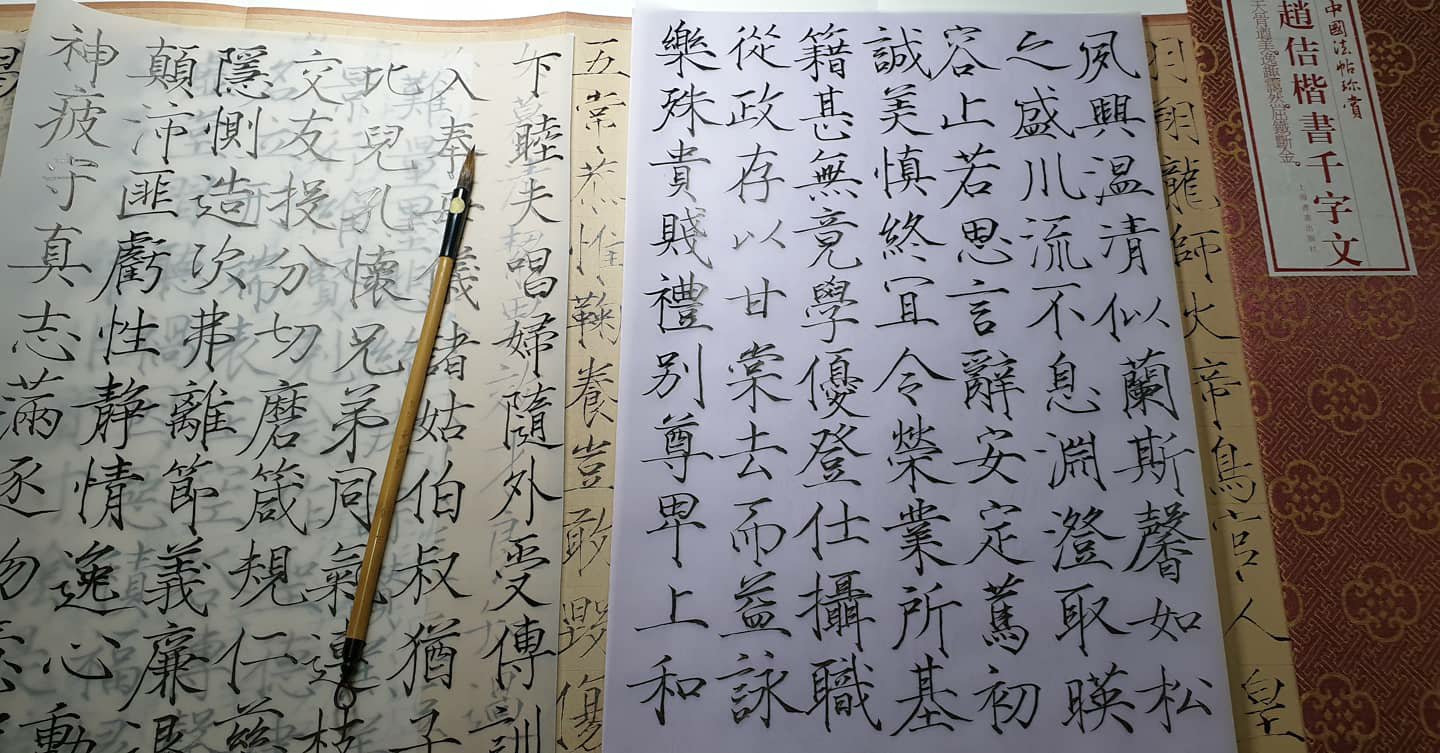 中國法帖珍賞
趙佶楷書千字文
天骨遒美逸趣靄然屈鐵斷金
上海書畫出版社
羽翔龍師火帝鳥官人皇
夙興温凊似蘭斯馨如松
之盛川流不息淵澄取暎
容止若思言辭安定篤初
誠美慎終宜令榮業所基
籍甚無竟學優登仕攝職
從政存以甘棠去而益詠
樂殊貴賤禮别尊卑上和
五常恭惟鞠養豈敢毀傷
下睦夫唱婦隨外受傳訓
入奉母儀諸姑伯叔猶子
比兒孔懷兄弟同氣連枝
交友投分切磨箴規仁慈
隱惻造次弗離節義廉退
顛沛匪虧性静情逸心動
神疲守真志滿逐